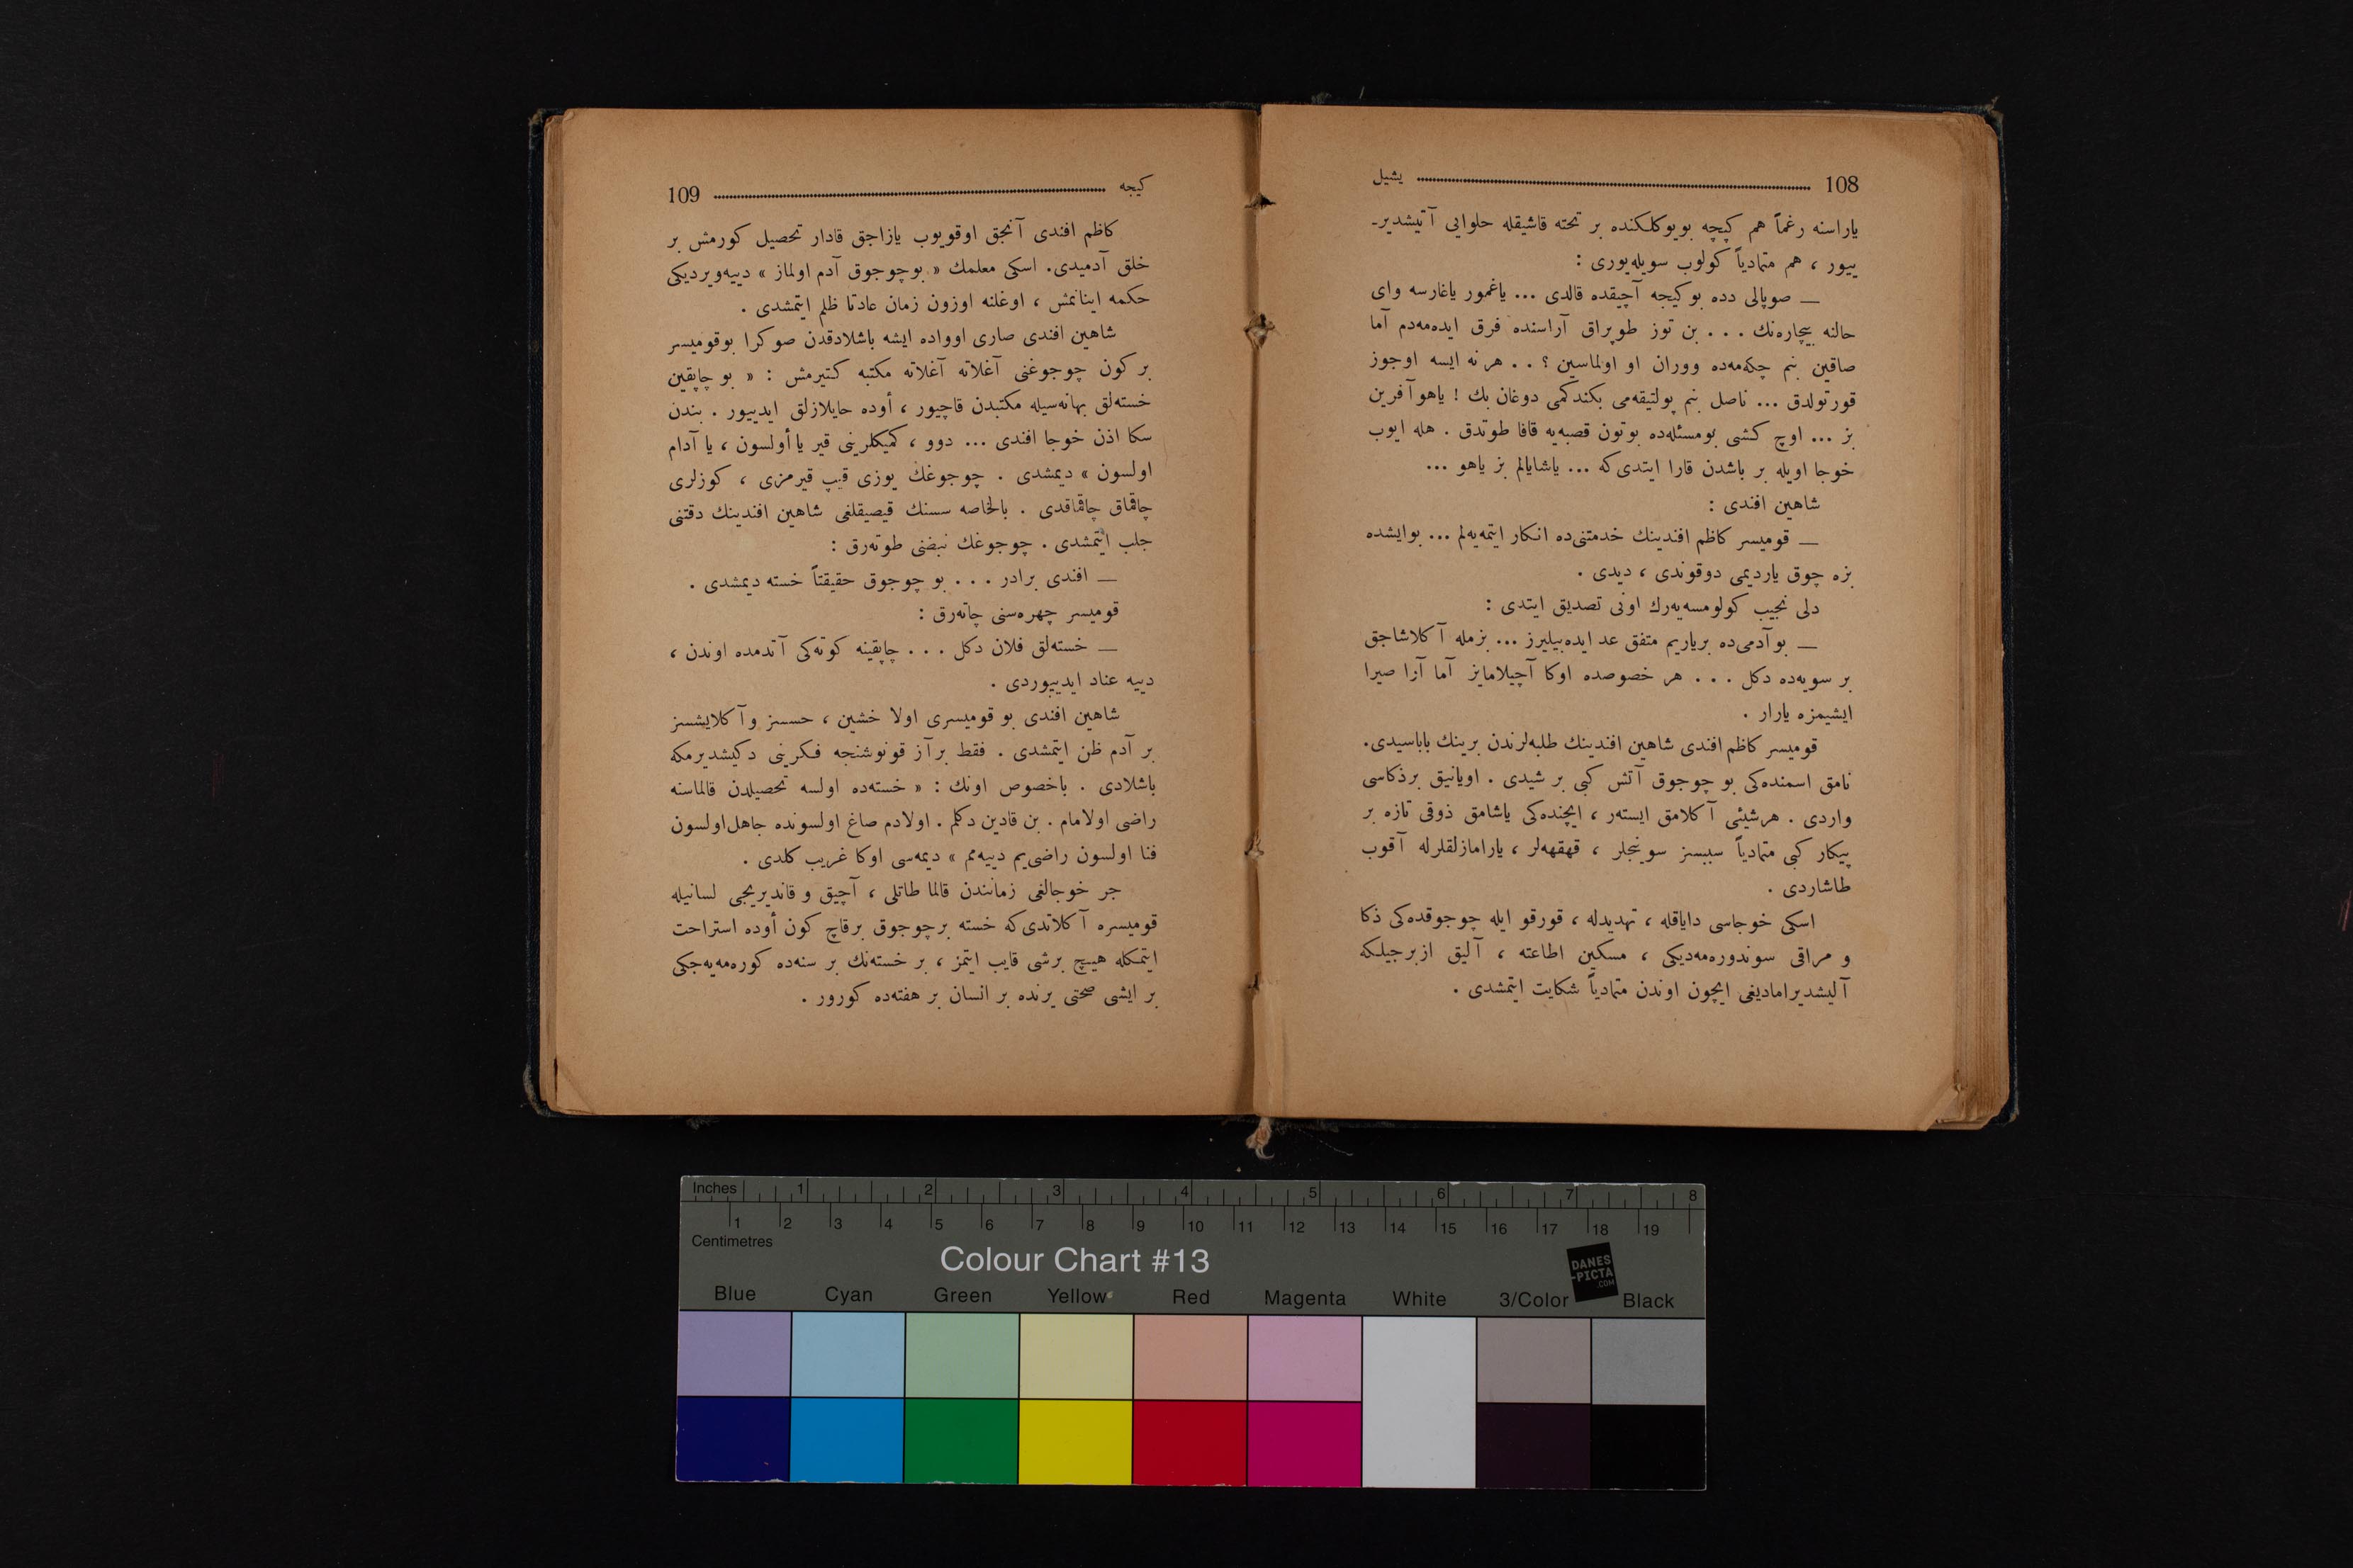 108 یشیل
یاراسنه رغماً هم كپچه بویوكلكنده بر تخته قاشیقله حلوایی آتیشدیر-
ییور ، هم متمادیاً كولوب سویله‌یوری :
— صوپالی دده بو كیجه آچیقده قالدی ... یاغمور یاغارسه وای
حالنه بیچاره‌نك . . . بن توز طوپراق آراسنده فرق ایده‌مه‌دم آما
صاقین بنم چكمه‌مده ووران او اولماسین ؟ . . هر نه ایسه اوجوز
قورتولدق ... ناصل بنم پولتیقه‌می بكندكمی دوغان بك ! یاهو آفرین
بز ... اوچ كشی بومسئله‌ده بوتون قصبه‌یه قافا طوتدق . هله ایوب
خوجا اویله بر باشدن قارا ایتدی‌كه ... یاشایالم بز یاهو ...
شاهین افندی :
— قومیسر كاظم افندینك خدمتنی‌ده انكار ایتمه‌یه‌لم ... بوایشده
بزه چوق یاردیمی دوقوندی ، دیدی .
دلی نجیب كولومسه‌یه‌رك اونی تصدیق ایتدی :
— بوآدمی‌ده بریاریم متفق عد ایده‌بیلیرز ... بزمله آكلاشاجق
بر سویه‌ده دكل . . . هر خصوصده اوكا آچیلامایز آما آزا صیرا
ایشیمزه یارار .
قومیسر كاظم افندی شاهین افندینك طلبه‌لرندن برینك باباسیدی.
نامق اسمنده‌كی بو چوجوق آتش كبی بر شیدی . اویانیق برذكاسی
واردی . هرشیئی آكلامق ایستەر ، ایچنده‌كی یاشامق ذوقی تازه بر
پیكار كبی متمادیاً سببسز سوینجلر ، قهقهه‌لر ، یارامازلقلرله آقوب
طاشاردی .
اسكی خوجاسی دایاقله ، تهدیدله ، قورقو ایله چوجوقده‌كی ذكا
و مراقی سوندوره‌مه‌دیكی ، مسكین اطاعته ، آلیق ازبرجیلكه
آلیشدیرامادیغی ایچون اوندن متمادیاً شكایت ایتمشدی .
كیجه 109
كاظم افندی آنجق اوقویوب یازاجق قادار تحصیل كورمش بر
خلق آدمیدی. اسكی معلمك « بوچوجوق آدم اولماز » دییه‌ویردیكی
حكمه اینانمش ، اوغلنه اوزون زمان عادتا ظلم ایتمشدی .
شاهین افندی صاری اوواده ایشه باشلادقدن صوكرا بوقومیسر
بر كون چوجوغنی آغلاته آغلاته مكتبه كتیرمش : « بو چاپقین
خسته‌لق بهانه‌سیله مكتبدن قاچیور ، أوده حایلازلق ایدییور . بندن
سكا اذن خوجا افندی ... دوو ، كمیكلرینی قیر یا أولسون ، یا آدام
اولسون » دیمشدی . چوجوغك یوزی قیپ قیرمزی ، كوزلری
چاقماق چاقماقدی . بالخاصه سسنك قیصیقلغی شاهین افندینك دقتنی
جلب ایتمشدی . چوجوغك نبضنی طوته‌رق :
— افندی برادر . . . بو چوجوق حقیقتاً خسته دیمشدی .
قومیسر چهره‌سنی چاته‌رق :
— خسته‌لق فلان دكل . . . چاپقینه كوته‌كی آتدمده اوندن ،
دییه عناد ایدییوردی .
شاهین افندی بو قومیسری اولا خشین ، حسسز وآكلایشسز
بر آدم ظن ایتمشدی . فقط برآز قونوشنجه فكرینی دكیشدیرمكه
باشلادی . باخصوص اونك : « خسته‌ده اولسه تحصیلدن قالماسنه
راضی اولامام . بن قادین دكلم . اولادم صاغ اولسونده جاهل‌اولسون
فنا اولسون راضی‌یم دییه‌مم » دیمه‌سی اوكا غریب كلدی .
جر خوجالغی زمانندن قالما طاتلی ، آچیق و قاندیریجی لسانیله
قومیسره آكلاتدی‌كه خسته برچوجوق برقاچ كون أوده استراحت
ایتمكله هیچ برشی قایب ایتمز ، بر خسته‌نك بر سنه‌ده كوره‌مه‌یه‌جكی
بر ایشی صحتی یرنده بر انسان بر هفته‌ده كورور .
Inches 1 2 3 4 5 6 7 8
1 2 3 4 5 6 7 8 9 10 11 12 13 14 15 16 17 18 19
Centimetres
Colour Chart #13
DANES
-PICTA
.COM
Blue Cyan Green Yellow Red Magenta White 3/Color Black